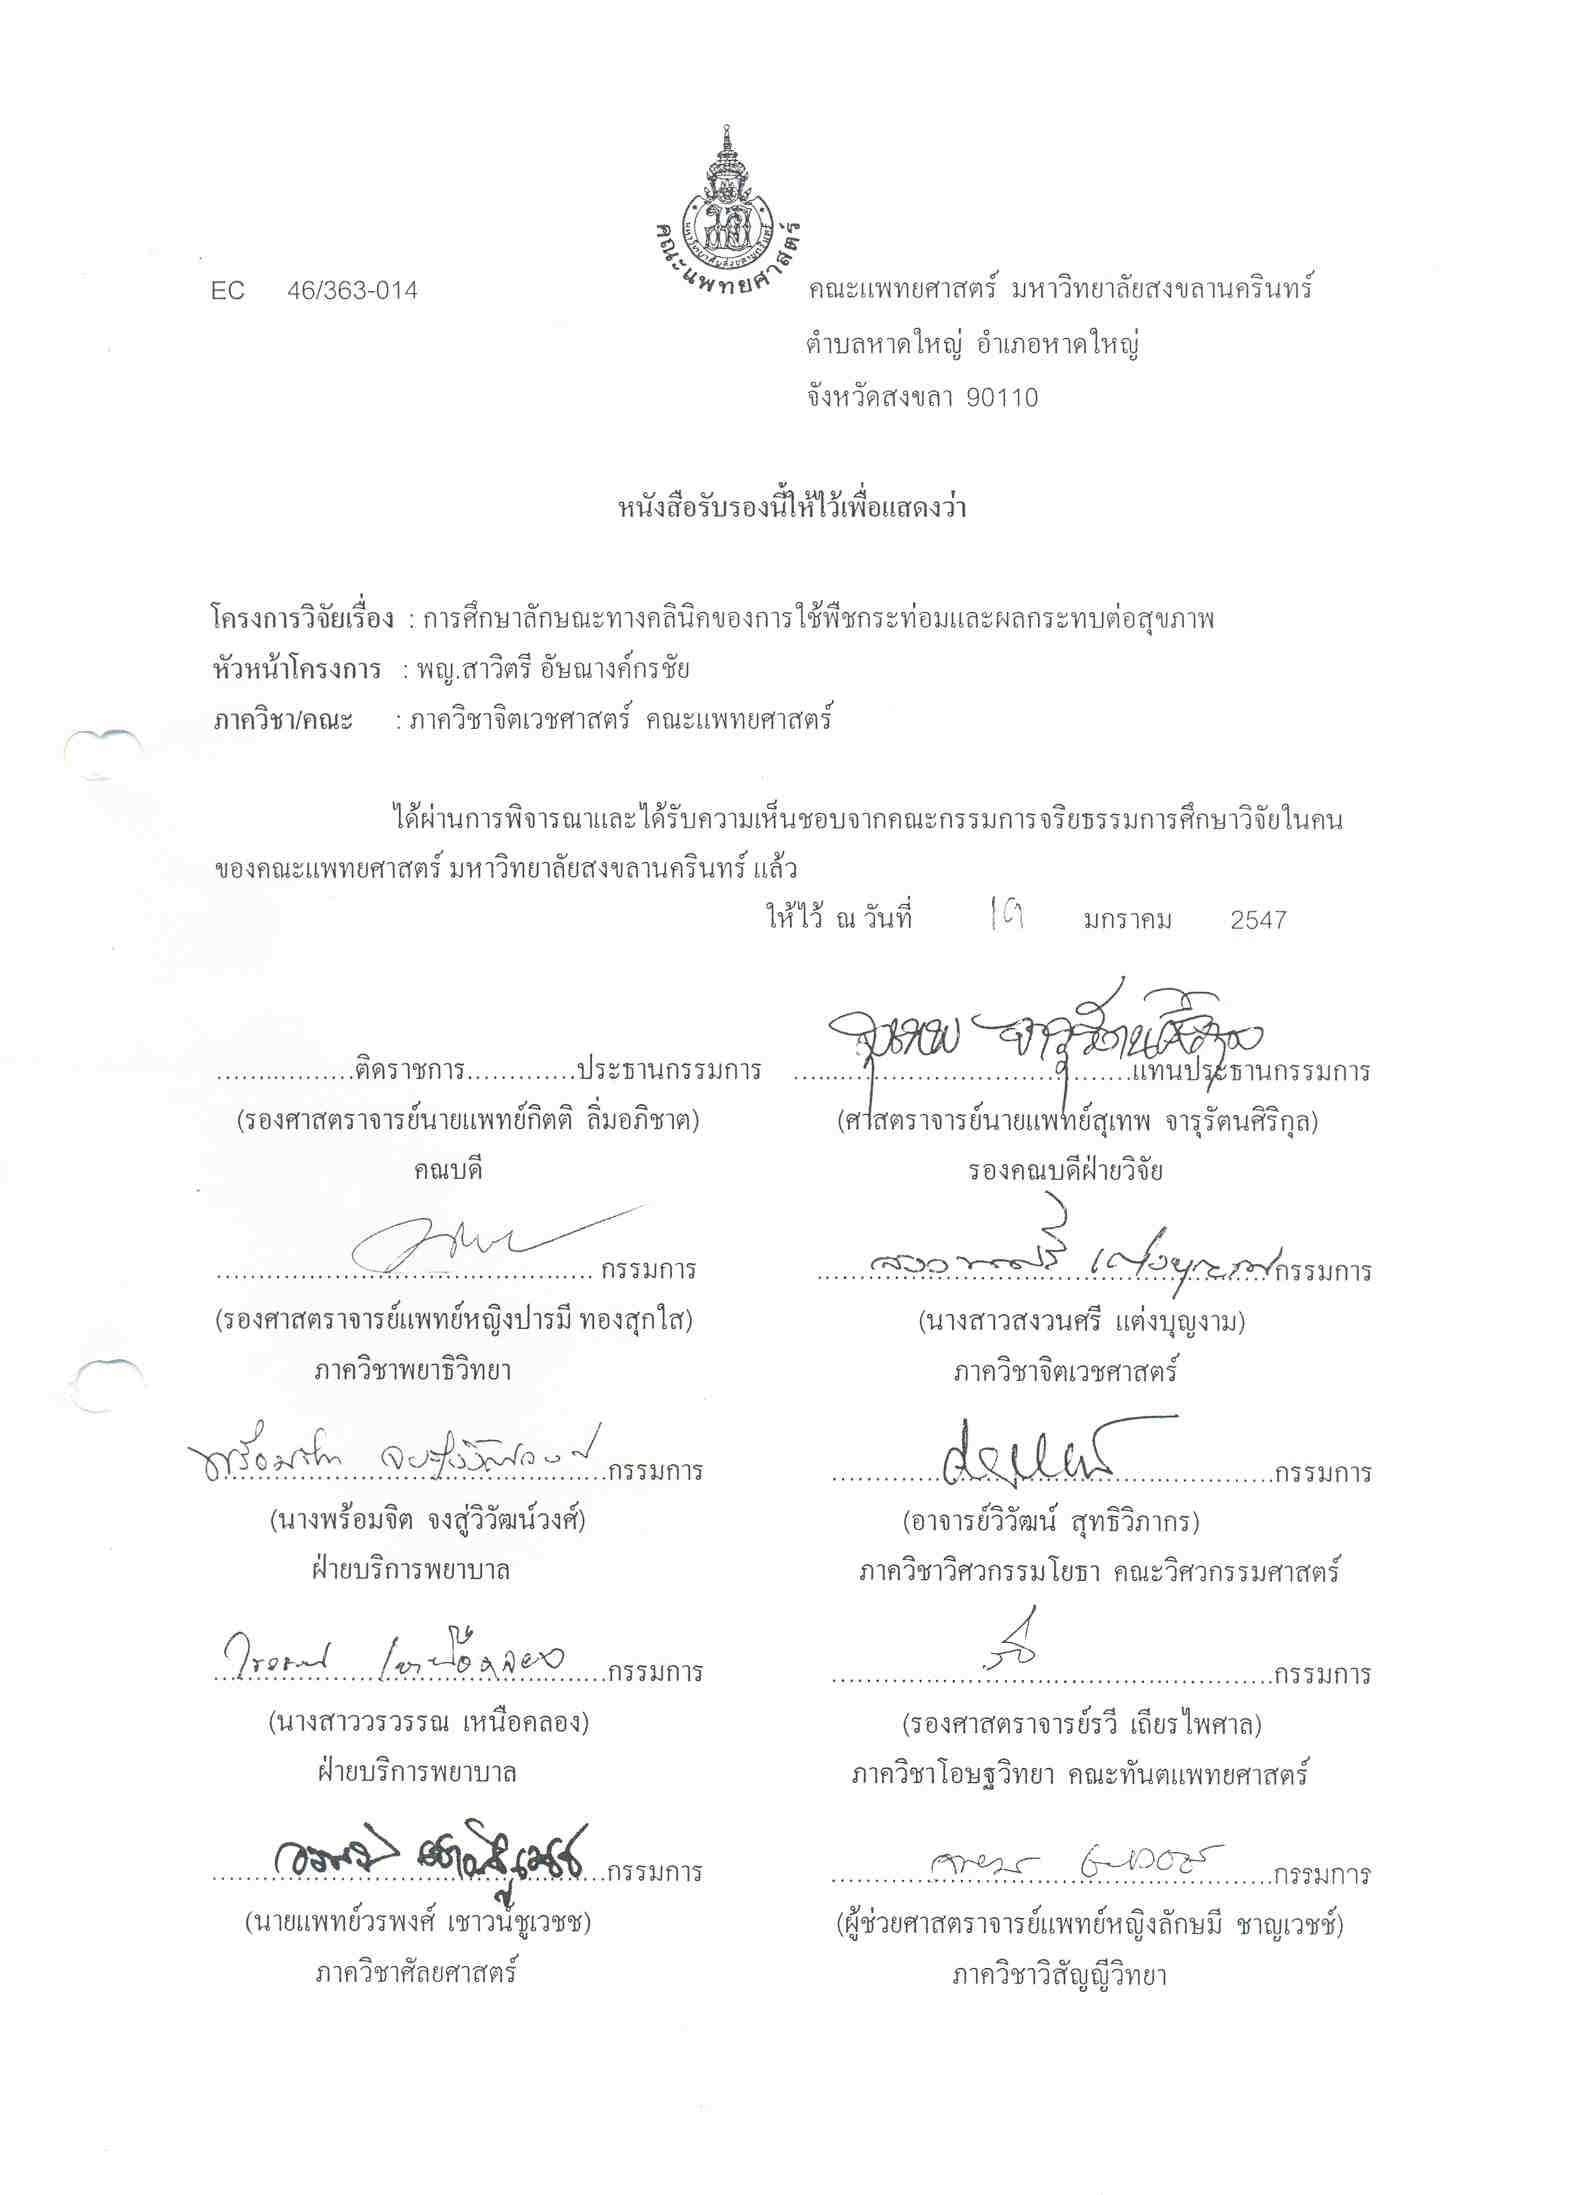 มหาวิทยาลัยสงขลานครินทร์
คณะแพทยศาสตร์
EC 46/363-014
คณะแพทยศาสตร์ มหาวิทยาลัยสงขลานครินทร์
ตำบลหาดใหญ่ อำเภอหาดใหญ่
จังหวัดสงขลา 90110
หนังสือรับรองนี้ให้ไว้เพื่อแสดงว่า
โครงการวิจัยเรื่อง : การศึกษาลักษณะทางคลินิคของการใช้พืชกระท่อมและผลกระทบต่อสุขภาพ
หัวหน้าโครงการ : พญ.สาวิตรี อัษณางค์กรชัย
ภาควิชา/คณะ : ภาควิชาจิตเวชศาสตร์ คณะแพทยศาสตร์
ได้ผ่านการพิจารณาและได้รับความเห็นชอบจากคณะกรรมการจริยธรรมการศึกษาวิจัยในคน
ของคณะแพทยศาสตร์ มหาวิทยาลัยสงขลานครินทร์ แล้ว
ให้ไว้ ณ วันที่ มกราคม 2547
สุเทพ จารุรัตนศิริกุล
.................ติดราชการ.............ประธานกรรมการ ........................................แทนประธานกรรมการ
(รองศาสตราจารย์นายแพทย์กิตติ ลิ่มอภิชาต) (ศาสตราจารย์นายแพทย์สุเทพ จารุรัตนศิริกุล)
คณบดี รองคณบดีฝ่ายวิจัย
สงวนศรี แต่งบุญงาม
.............................................. กรรมการ ......................................................กรรมการ
(รองศาสตราจารย์แพทย์หญิงปารมี ทองสุกใส) (นางสาวสงวนศรี แต่งบุญงาม)
ภาควิชาพยาธิวิทยา ภาควิชาจิตเวชศาสตร์
พร้อมจิต จงสู่วิวัฒน์วงศ์
...............................................กรรมการ ......................................................กรรมการ
(นางพร้อมจิต จงสู่วิวัฒน์วงศ์) (อาจารย์วิวัฒน์ สุทธิวิภากร)
ฝ่ายบริการพยาบาล ภาควิชาวิศวกรรมโยธา คณะวิศวกรรมศาสตร์
วรวรรณ เหนือคลอง
...............................................กรรมการ ......................................................กรรมการ
(นางสาววรวรรณ เหนือคลอง) (รองศาสตราจารย์รวี เถียรไพศาล)
ฝ่ายบริการพยาบาล ภาควิชาโอษฐวิทยา คณะทันตแพทยศาสตร์
วรพงศ์ เชาวน์ชูเวชช
...............................................กรรมการ ......................................................กรรมการ
(นายแพทย์วรพงศ์ เชาวน์ชูเวชช) (ผู้ช่วยศาสตราจารย์แพทย์หญิงลักษมี ชาญเวชช์)
ภาควิชาศัลยศาสตร์ ภาควิชาวิสัญญีวิทยา